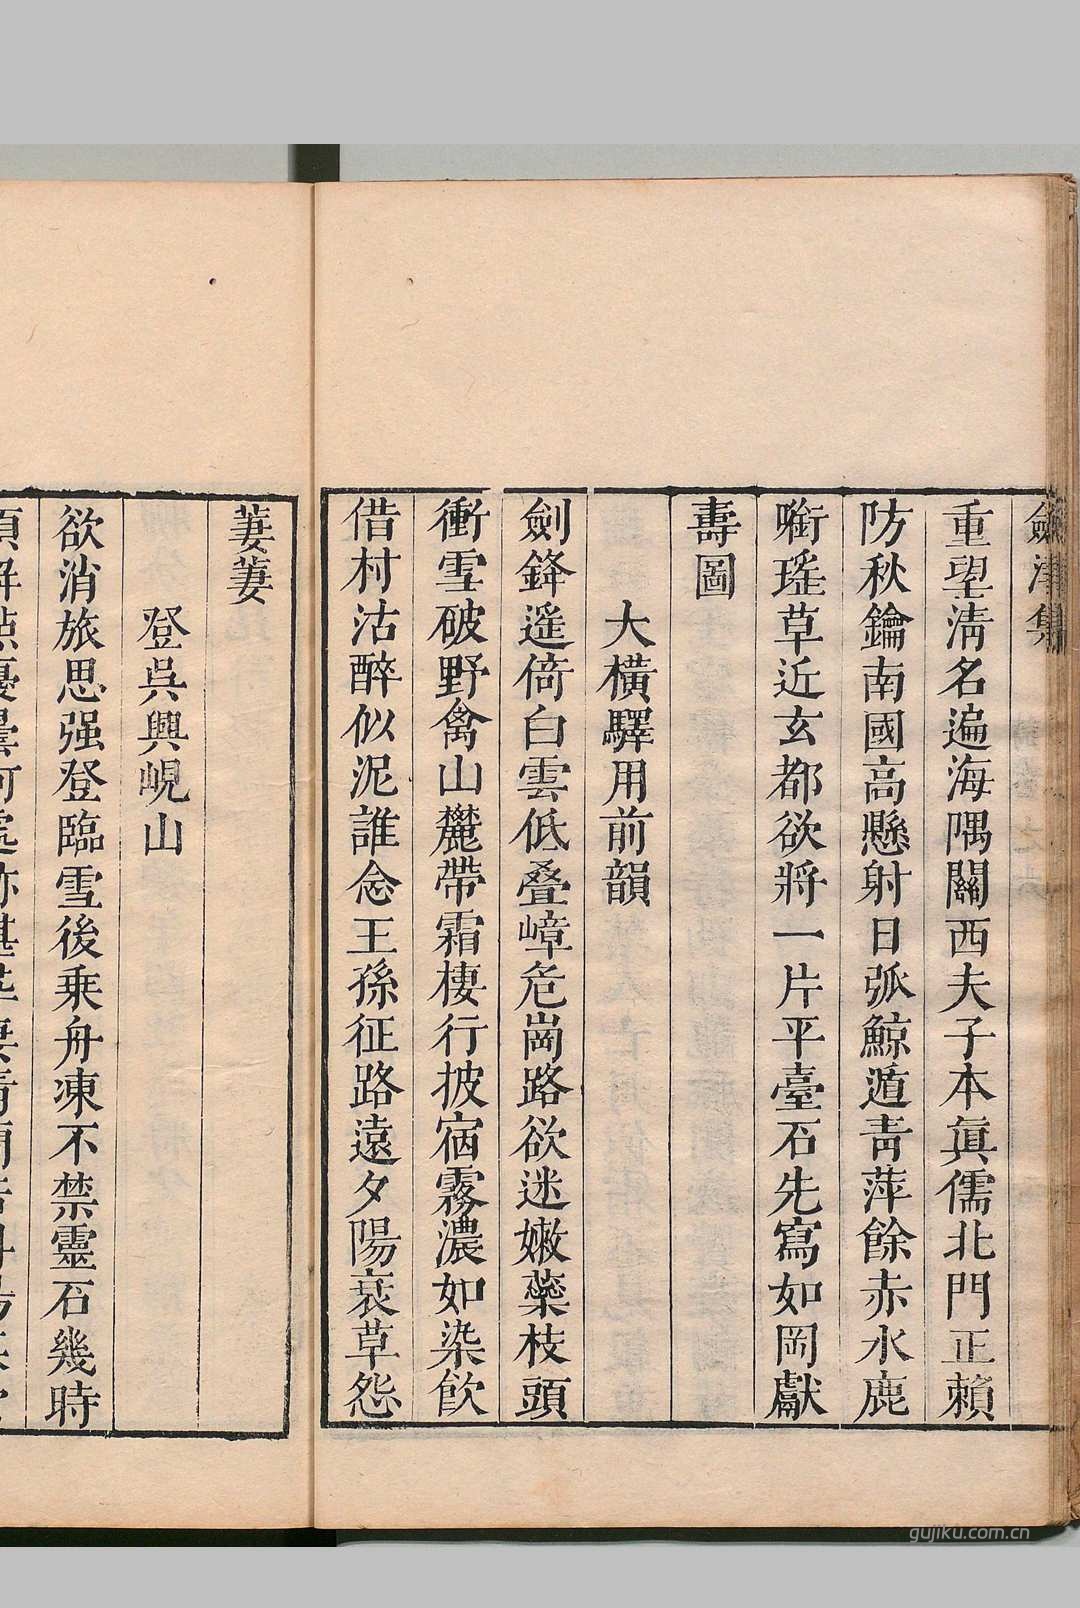 劍津集
重望清名遍海隅關西夫子本眞儒北門正賴
防秋鑰南國高懸射日弧鯨遁靑萍餘赤水鹿
啣瑤草近玄都欲將一片平臺石先寫如岡獻
壽圖
大橫驛用前韻
劍鋒遙倚白雲低叠嶂危崗路欲迷嫩蘂枝頭
衝雪破野禽山麓帶霜棲行披宿霧濃如染飲
借村沽醉似泥誰念王孫征路遠夕陽衰草怨
萋萋
登吳興峴山
欲消旅思强登臨雪後乘舟凍不禁靈石幾時
gujiku.com.cn